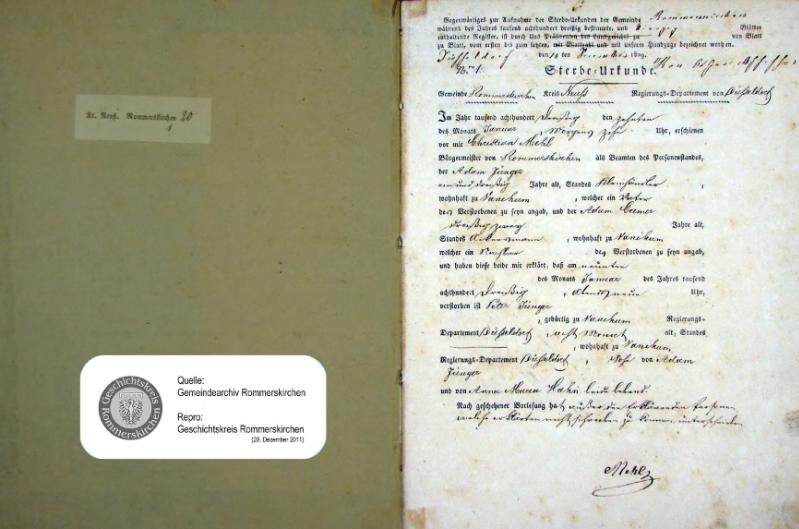 Kr. Neuß. Rommerskirchen 20
1
Geschichtskreis Rommerskirchen
Quelle:
Gemeindearchiv Rommerskirchen
Repro:
Geschichtskreis Rommerskirchen
(28. Dezember 2011)
Gegenwärtiges zur Aufnahme der Sterbe-Urkunden der Gemeinde Rommerskirchen
während des Jahres tausend achthundert dreißig bestimmte, und Blätter
enthaltende Register, ist durch Uns Präsidenten des Landgerichts zu von Blatt
zu Blatt, vom ersten bis zum letzten, mit Blattzahl und mit unserm Handzuge bezeichnet worden.
Düsseldorf den 1829.
Nro. 1. Sterbe-Urkunde.
Gemeinde Rommerskirchen Kreis Neuß Regierungs-Departement von Düsseldorf
Im Jahr tausend achthundert Dreißig den zehnten
des Monats Januar, Morgens zehn Uhr, erschienen
vor mir Christian Mehl
Bürgermeister von Rommerskirchen als Beamten des Personenstandes,
der Adam Jünger
ein und dreißig Jahre alt, Standes Kleinhändler,
wohnhaft zu Vanikum, welcher ein Vater
des Verstorbenen zu seyn angab, und der Adam
dreißig zwey Jahre alt,
Standes Ackersmann, wohnhaft zu Vanikum
welcher ein Nachbar des Verstorbenen zu seyn angab,
und haben diese beide mir erklärt, daß am neunten
des Monats Januar des Jahres tausend
achthundert Dreißig, Abends neun Uhr,
verstorben ist Peter Jünger
, gebürtig zu Vanikum Regierungs-
Departement Düsseldorf, acht Monat alt, Standes
, wohnhaft zu Vanikum
Regierungs-Departement Düsseldorf, Sohn von Adam
Jünger
und von Anna Maria Hahn beide lebend.
Nach geschehener Vorlesung hat außer den erklärenden Personen
welche erklärten nicht schreiben zu können, unterschrieben
Mehl